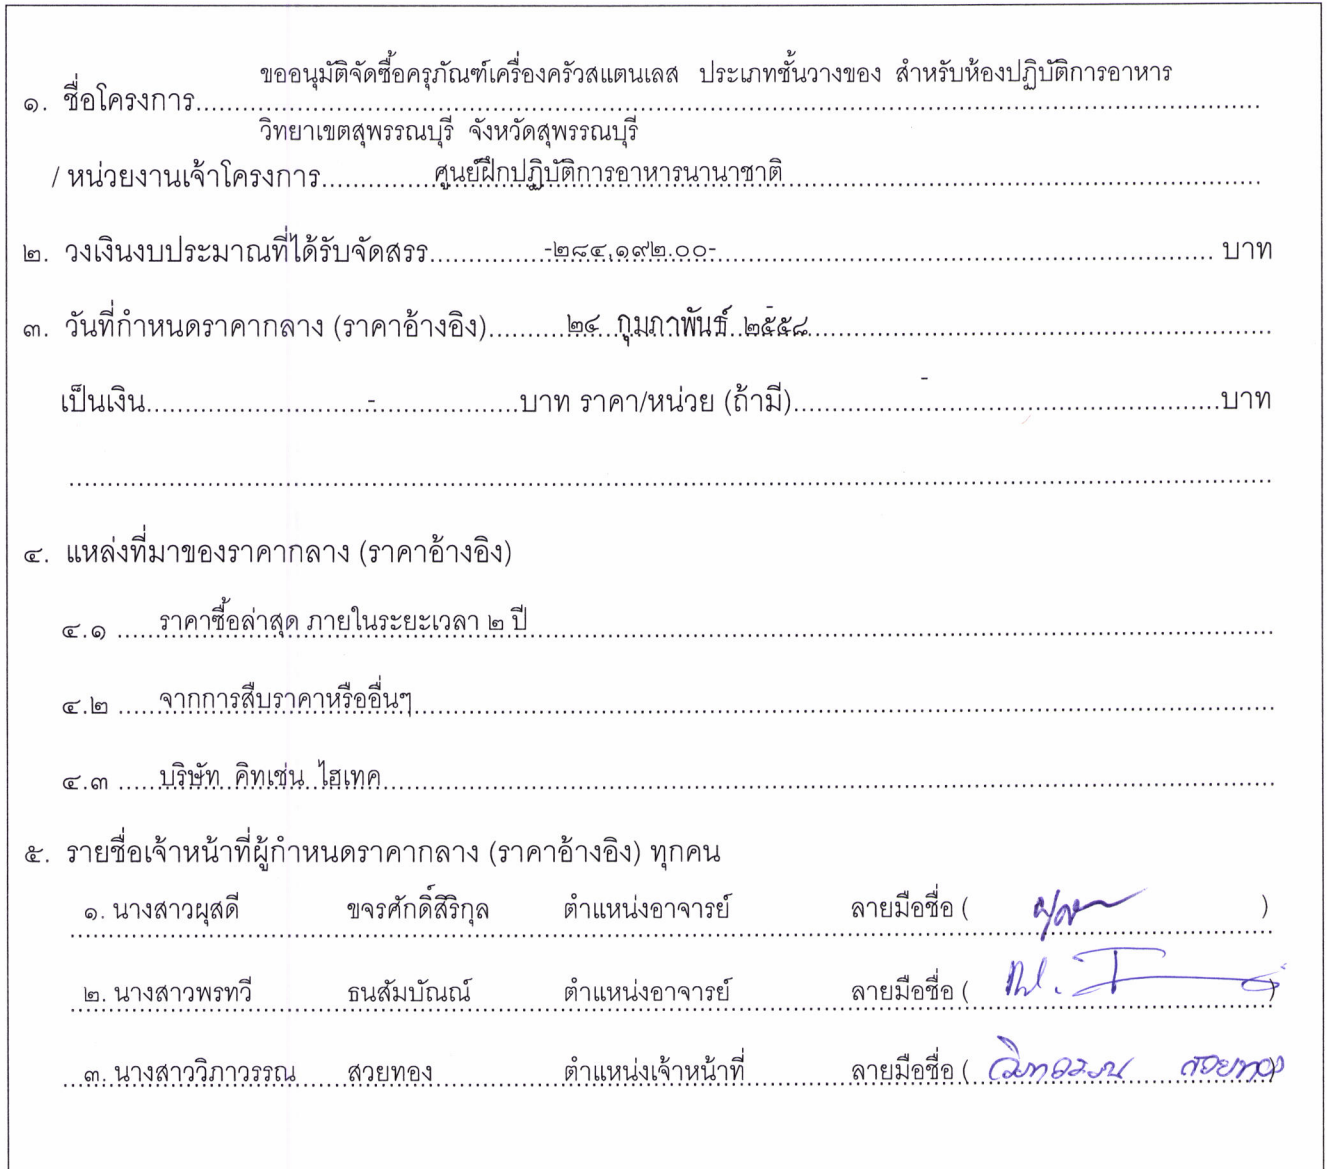 ขออนุมัติจัดซื้อครุภัณฑ์เครื่องครัวสแตนเลส ประเภทชั้นวางของ สำหรับห้องปฏิบัติการอาหาร
๑. ชื่อโครงการ
วิทยาเขตสุพรรณบุรี จังหวัดสุพรรณบุรี
/ หน่วยงานเจ้าโครงการ ศูนย์ฝึกปฏิบัติการอาหารนานาชาติ
๒. วงเงินงบประมาณที่ได้รับจัดสรร -๒๘๔,๑๙๒.๐๐- บาท
๓. วันที่กำหนดราคากลาง (ราคาอ้างอิง) ๒๔ กุมภาพันธ์ ๒๕๕๘
เป็นเงิน - บาท ราคา/หน่วย (ถ้ามี) - บาท
๔. แหล่งที่มาของราคากลาง (ราคาอ้างอิง)
๔.๑ ราคาซื้อล่าสุด ภายในระยะเวลา ๒ ปี
๔.๒ จากการสืบราคาหรืออื่นๆ
๔.๓ บริษัท คิทเช่น ไฮเทค
๕. รายชื่อเจ้าหน้าที่ผู้กำหนดราคากลาง (ราคาอ้างอิง) ทุกคน
๑. นางสาวผุสดี ขจรศักดิ์สิริกุล ตำแหน่งอาจารย์ ลายมือชื่อ ( )
๒. นางสาวพรทวี ธนสัมบัณณ์ ตำแหน่งอาจารย์ ลายมือชื่อ ( )
๓. นางสาววิภาวรรณ สวยทอง ตำแหน่งเจ้าหน้าที่ ลายมือชื่อ ( วิภาวรรณ สวยทอง )